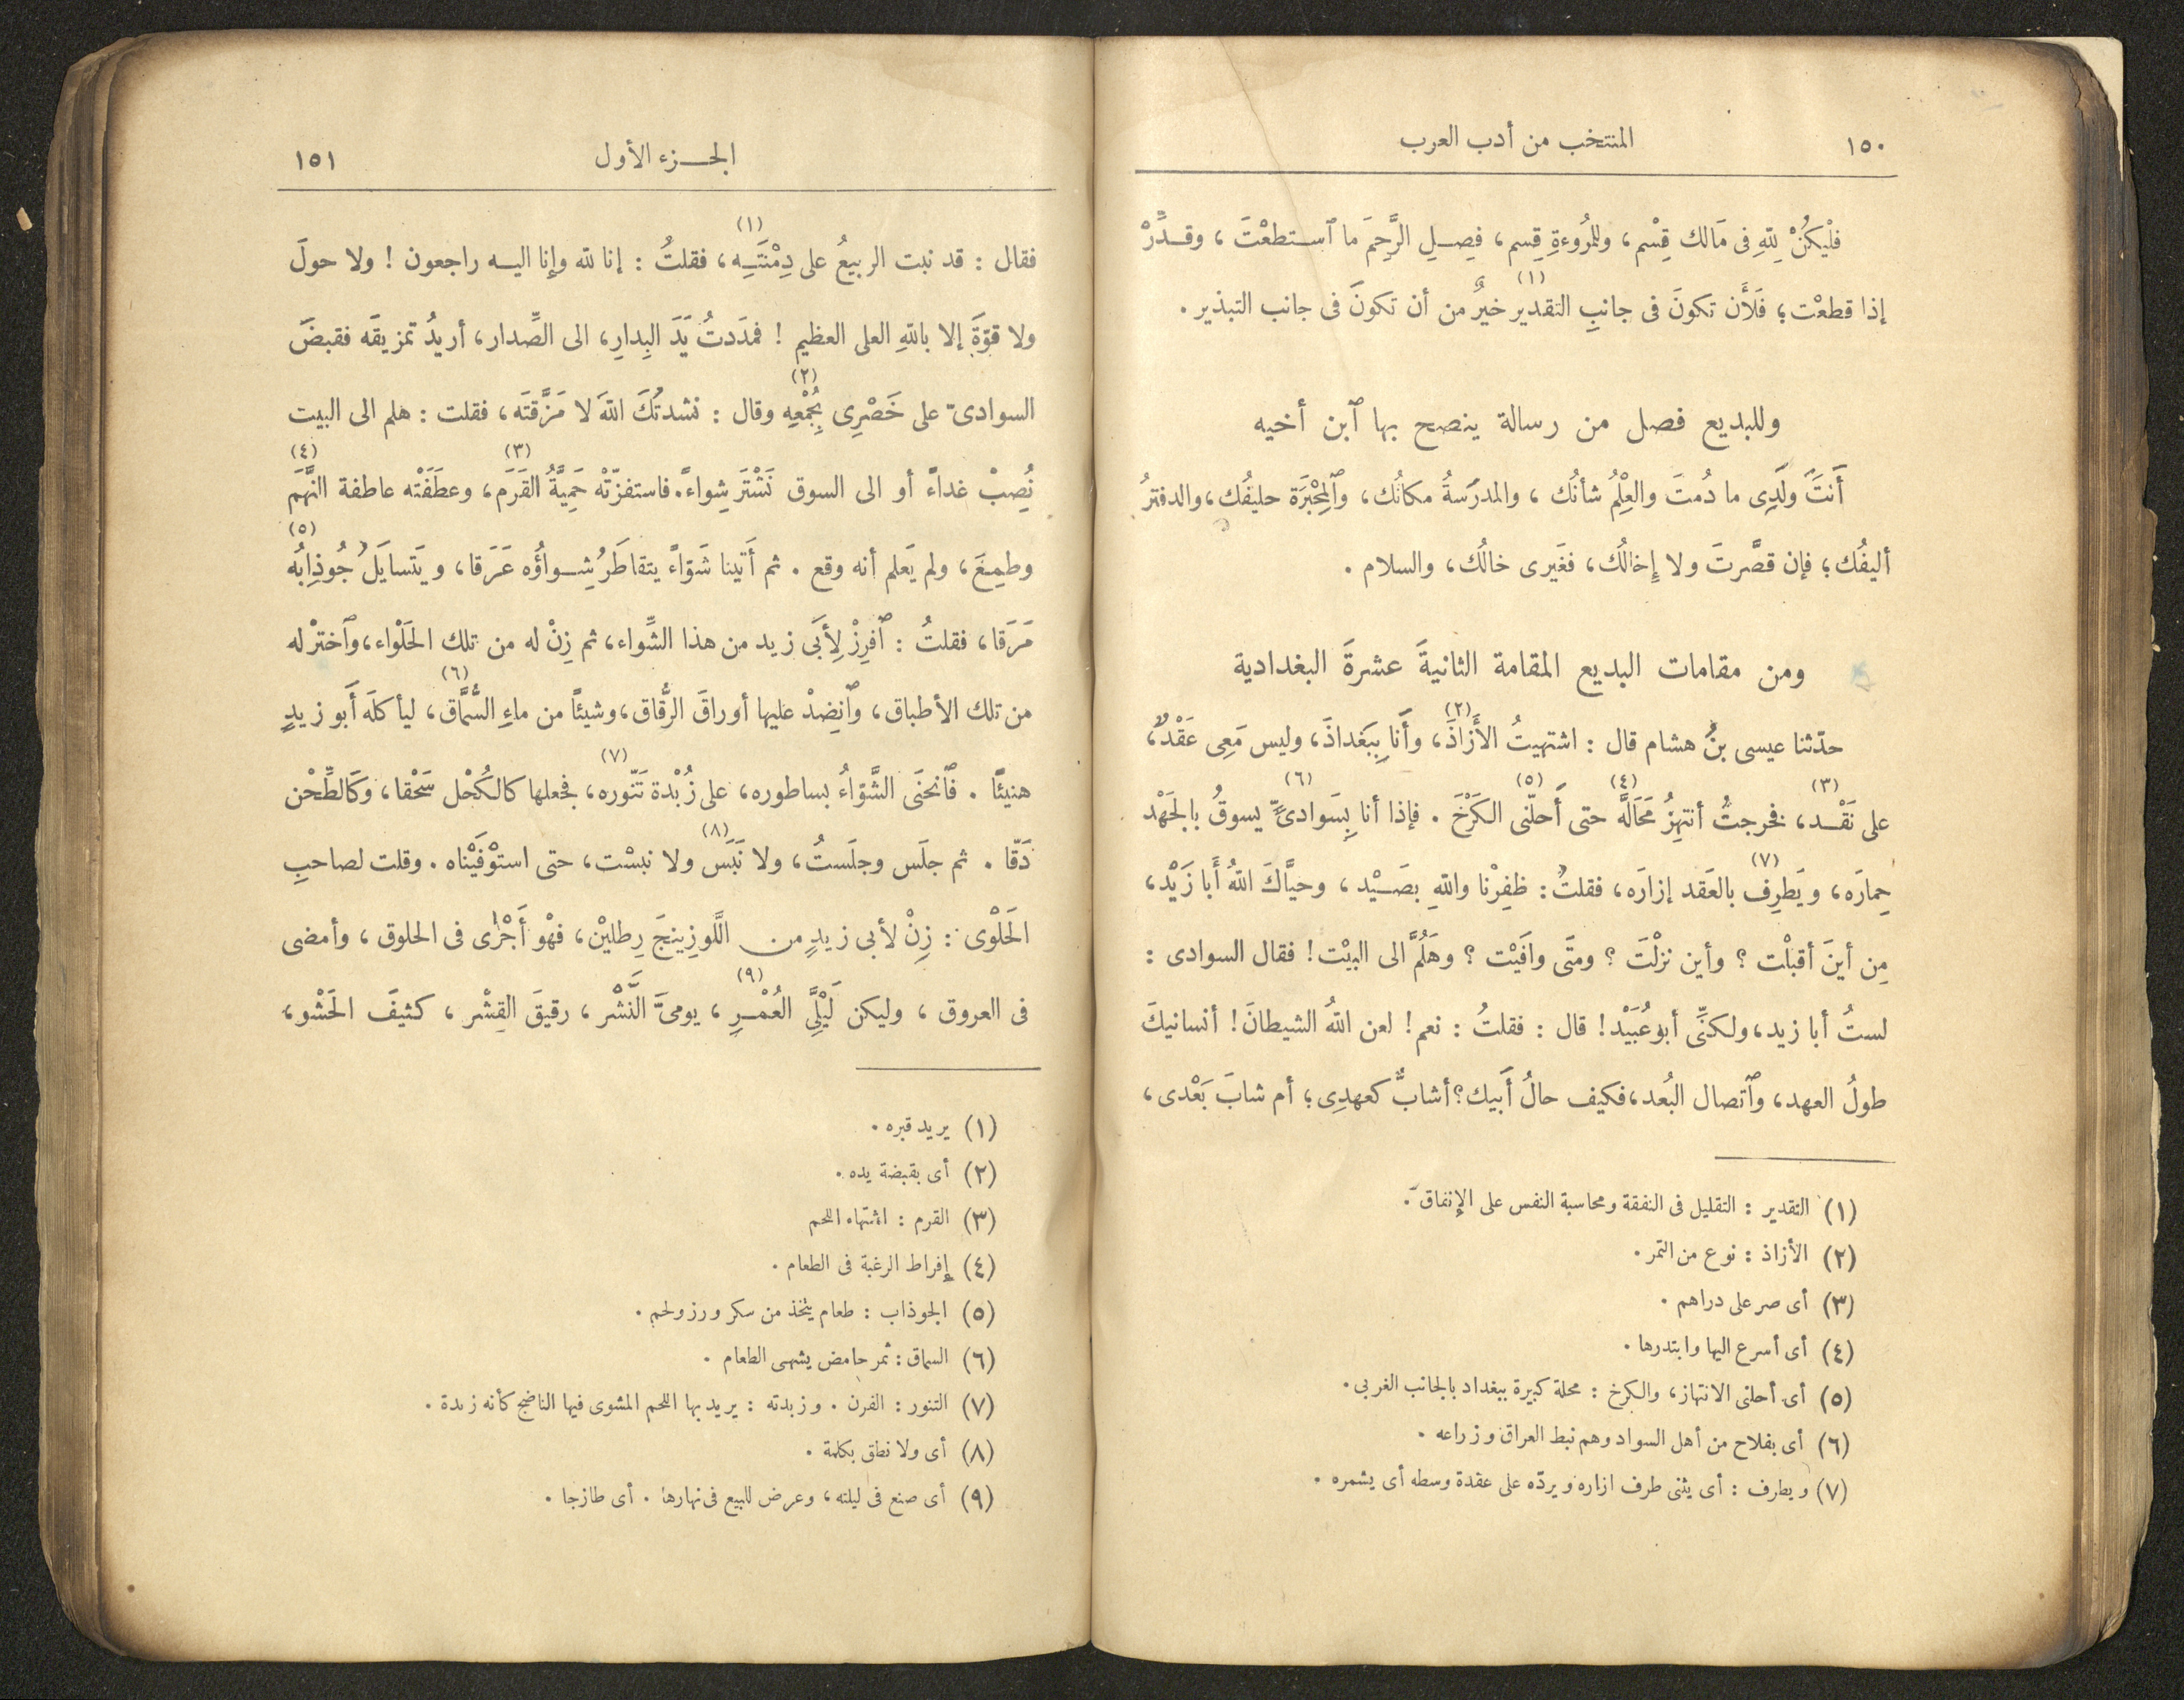 ١٥٠
المنتخب من أدب العرب
فلْيكُنْ لِلّهِ فى مَالك قِسْم، وللمُروءةِ قِسم، فِصِلِ الرَّحِمَ ما ٱستطعْتَ، وقدِّرْ
إذا قطعْت؛ فَلَأَن تكونَ فى جانبِ التقدير (١) خيرٌ من أن تكونَ فى جانب التبذير.
وللبديع فصل من رسالة ينصح بها ٱبن أخيه
أَنتَ ولَدِى ما دُمتَ والعِلْمُ شأنُك، والمدرَسةُ مكانُك، وٱلمِحْبَرَة حليفُك، والدفترُ
أليفُك؛ فإن قصَّرتَ ولا إِخالُك، فغَيرى خالُك، والسلام.
ومن مقامات البديع المقامة الثانيةَ عشرةَ البغدادية
حدّثنا عيسى بنُ هشام قال : اشتهيتُ الأَزَاذَ (٢)، وأَنا بِبَغداذَ، وليس مَعِى عَقْدٌ،
على نَقْد (٣)، فخرجتُ أنتهِزُ مَحَالَّه (٤) حتى أَحلّنى (٥) الكَرْخَ. فإذا أنا بِسَوادىٍّ (٦) يسوقُ بالجَهْد
حِمارَه، ويَطرِف (٧) بالعَقد إزارَه، فقلتُ: ظفِرْنا واللهِ بصَيْد، وحيَّاكَ اللهُ أَبا زَيْد،
مِن أينَ أقبلْت؟ وأين نزلْتَ؟ ومتَى وافَيْت؟ وهَلُمَّ الى البيْت! فقال السوادى :
لستُ أبا زيد، ولكنِّى أبو عُبَيْد! قال : فقلتُ : نعم! لعن اللهُ الشيطانَ! أنسانيكَ
طولُ العهد، وٱتصال البُعد، فكيف حالُ أَبيك؟ أشابٌّ كعهدِى؛ أم شابَ بَعْدى،
(١) التقدير : التقليل فى النفقة ومحاسبة النفس على الإنفاق.
(٢) الأزاذ : نوع من التمر.
(٣) أى صر على دراهم.
(٤) أى أسرع اليها وابتدرها.
(٥) أى أحلنى الانتهاز، والكرخ : محلة كبيرة ببغداد بالجانب الغربى.
(٦) أى بفلاح من أهل السواد وهم نبط العراق وزراعه.
(٧) ويطرف : أى يثنى طرف ازاره ويردّه على عقدة وسطه أى يشمره.
الجزء الأول
١٥١
فقال : قد نبت الربيعُ على دِمْنَتِه (١)، فقلتُ : إنا لله وإنا اليه راجعون! ولا حولَ
ولا قوّةَ إلا باللهِ العلى العظيم! فمدَدتُ يَدَ البِدارِ، الى الصِّدار، أريدُ تمزيقَه فقبضَ
السوادىّ على خَصْرِى بِجُمْعِه (٢) وقال : نشدتُكَ اللهَ لا مَزَّقتَه، فقلت : هلم الى البيت
نُصِبْ غداءً أو الى السوق نَشْتَرَ شِواءً. فاستفزّتْه حَمِيَّةُ القَرَم (٣)، وعطَفَتْه عاطفة النَّهَمَ (٤)
وطمِعَ، ولم يَعلم أنه وقع. ثم أَتينا شَوّاءً يتقاطَرُ شِواؤُه عَرَقا، ويَتَسايَلُ جُوذِابُه (٥)
مَرَقا، فقلتُ : ٱفرِزْ لِأَبَى زيد من هذا الشِّواء، ثم زِنْ له من تلك الحَلْواء، وٱخترْ له
من تلك الأطباق، وٱنِضِدْ عليها أوراقَ الرُّقاق، وشيئًا من ماءِ السُّمَّاق (٦)، ليأكلَه أَبو زيدٍ
هنيئًا. فٱنحنَى الشَّوّاءُ بساطوره، على زُبْدة تَنّوره (٧)، فجعلها كالكُحْل سَحْقا، وكَالطِّحْن
دَقّا. ثم جلَس وجلَستُ، ولا نَبَسَ (٨) ولا نبسْت، حتى استوْفَيْناه. وقلت لصاحبِ
الحَلْوى : زِنْ لأبى زيدٍ من اللَّوزِينِجَ رِطلينْ، فهْو أَجْرَى فى الحلوق، وأمضى
فى العروق، وليكن لَيْلِّى العُمْرِ (٩)، يومىَّ النَّشْر، رقيقَ القِشْر، كثيفَ الحَشْو،
(١) يريد قبره.
(٢) أى بقبضة يده.
(٣) القرم : اشتهاء اللحم
(٤) إفراط الرغبة فى الطعام.
(٥) الجوذاب : طعام يتخذ من سكر ورز ولحم.
(٦) السماق : ثمر حامض يشهى الطعام.
(٧) التنور : الفرن. وزبدته : يريد بها اللحم المشوى فيها الناضج كأنه زبدة.
(٨) أى ولا نطق بكلمة.
(٩) أى صنع فى ليلته، وعرض للبيع فى نهارها. أى طازجا.